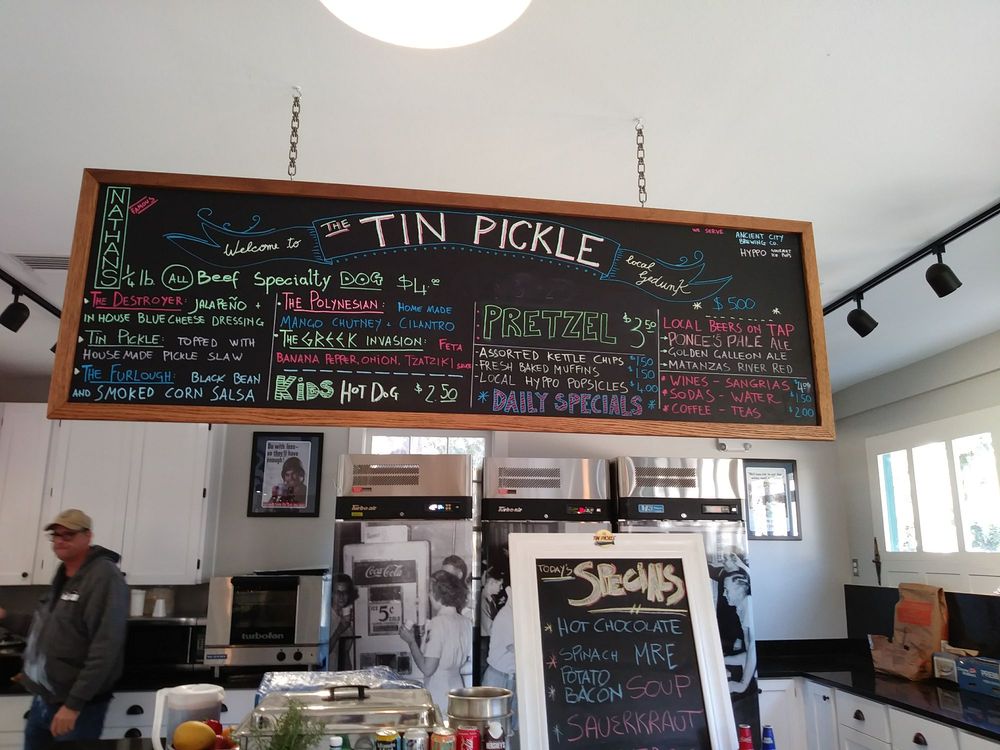 NATHANS
FAMOUS
Welcome to
THE TIN PICKLE
local Gedunk
WE SERVE
ANCIENT CITY
BREWING CO.
HYPPO
1/4 lb. ALL Beef Specialty DOG $4.00
THE DESTROYER: JALAPEÑO +
IN HOUSE BLUE CHEESE DRESSING
TIN PICKLE: TOPPED WITH
HOUSE MADE PICKLE SLAW
THE FURLOUGH: BLACK BEAN
AND SMOKED CORN SALSA
THE POLYNESIAN: HOME MADE
MANGO CHUTNEY + CILANTRO
THE GREEK INVASION: FETA
BANANA PEPPER, ONION, TZATZIKI SAUCE
KIDS HOT DOG $2.50
PRETZEL $3.50
ASSORTED KETTLE CHIPS $1.50
FRESH BAKED MUFFINS $1.50
LOCAL HYPPO POPSICLES $4.00
* DAILY SPECIALS *
* $5.00 *
LOCAL BEERS ON TAP
PONCE'S PALE ALE
GOLDEN GALLEON ALE
MATANZAS RIVER RED
* WINES - SANGRIAS $4.00
* SODAS - WATER $1.50
* COFFEE - TEAS $2.00
Do with less-
so they'll have
enough!
Turbo air
Turbo air
Coca-Cola
ICE
5¢
turbofan
TIN PICKLE
TODAY'S SPECIALS
* HOT CHOCOLATE
* SPINACH MRE
* POTATO
BACON SOUP
* SAUERKRAUT
HERSHEY'S